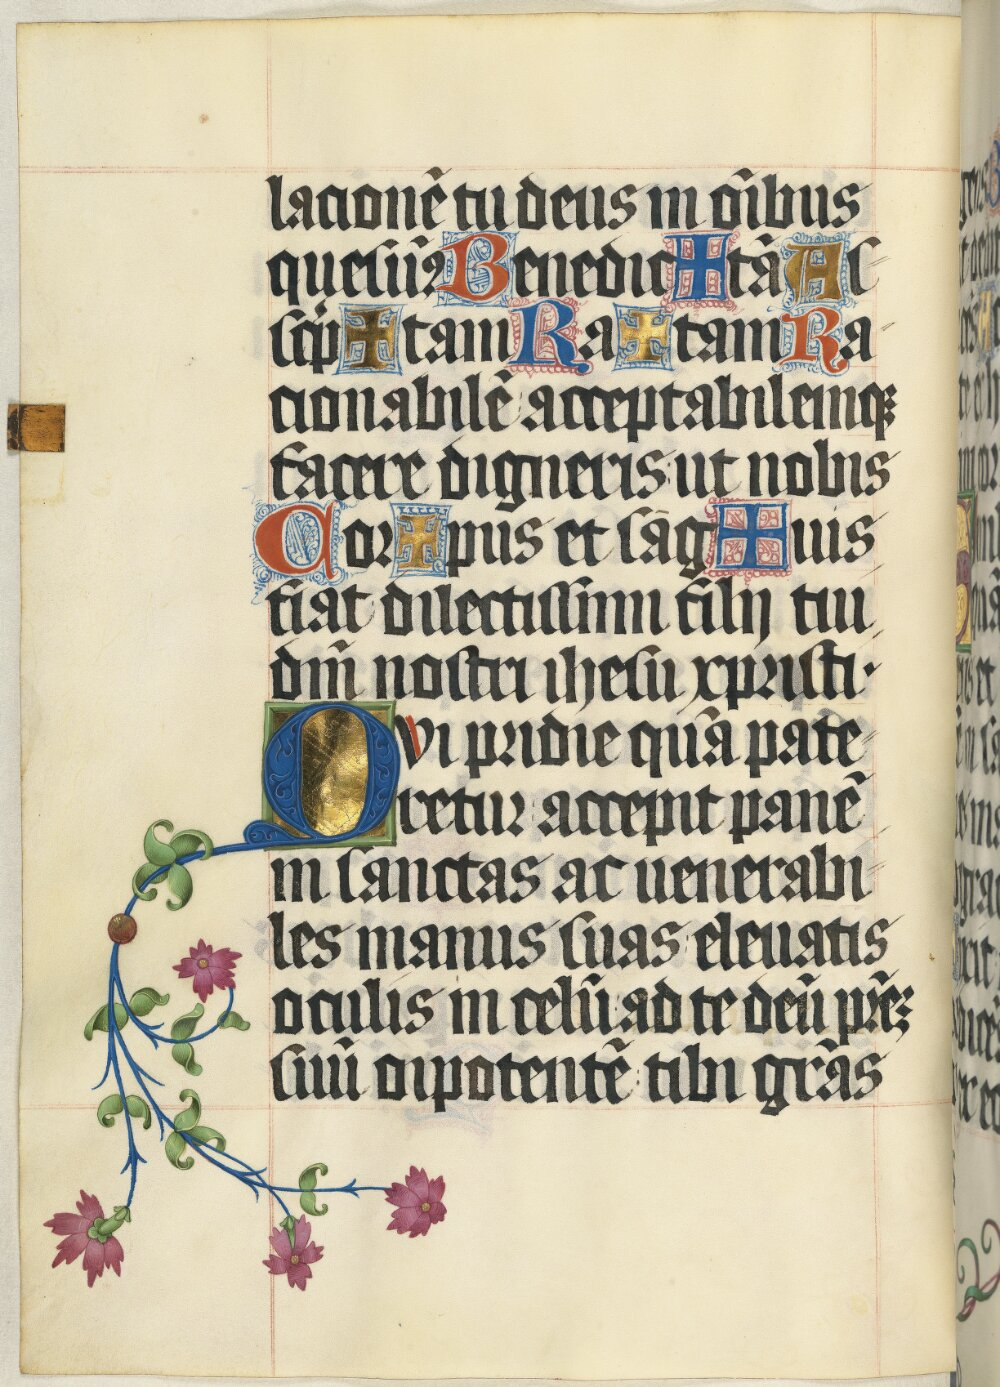 lacionē tu deus in oībus
quesūs Benedic✠tā As
sc̄p✠tam Ra✠tam Ra
cionabilē acceptabilemqꝫ
facere digneris: ut nobis
Cor✠pus et sāg✠uis
fiat dilectissimi filij tui
dn̄i nostri ihesu xpristi·
QVi pridie quā pate
retur accepit panē
in sanctas ac uenerabi
les manus suas: eleuatis
oculis in celū: ad te deū pr̄eꝫ
suū oīpotentē: tibi gr̄as